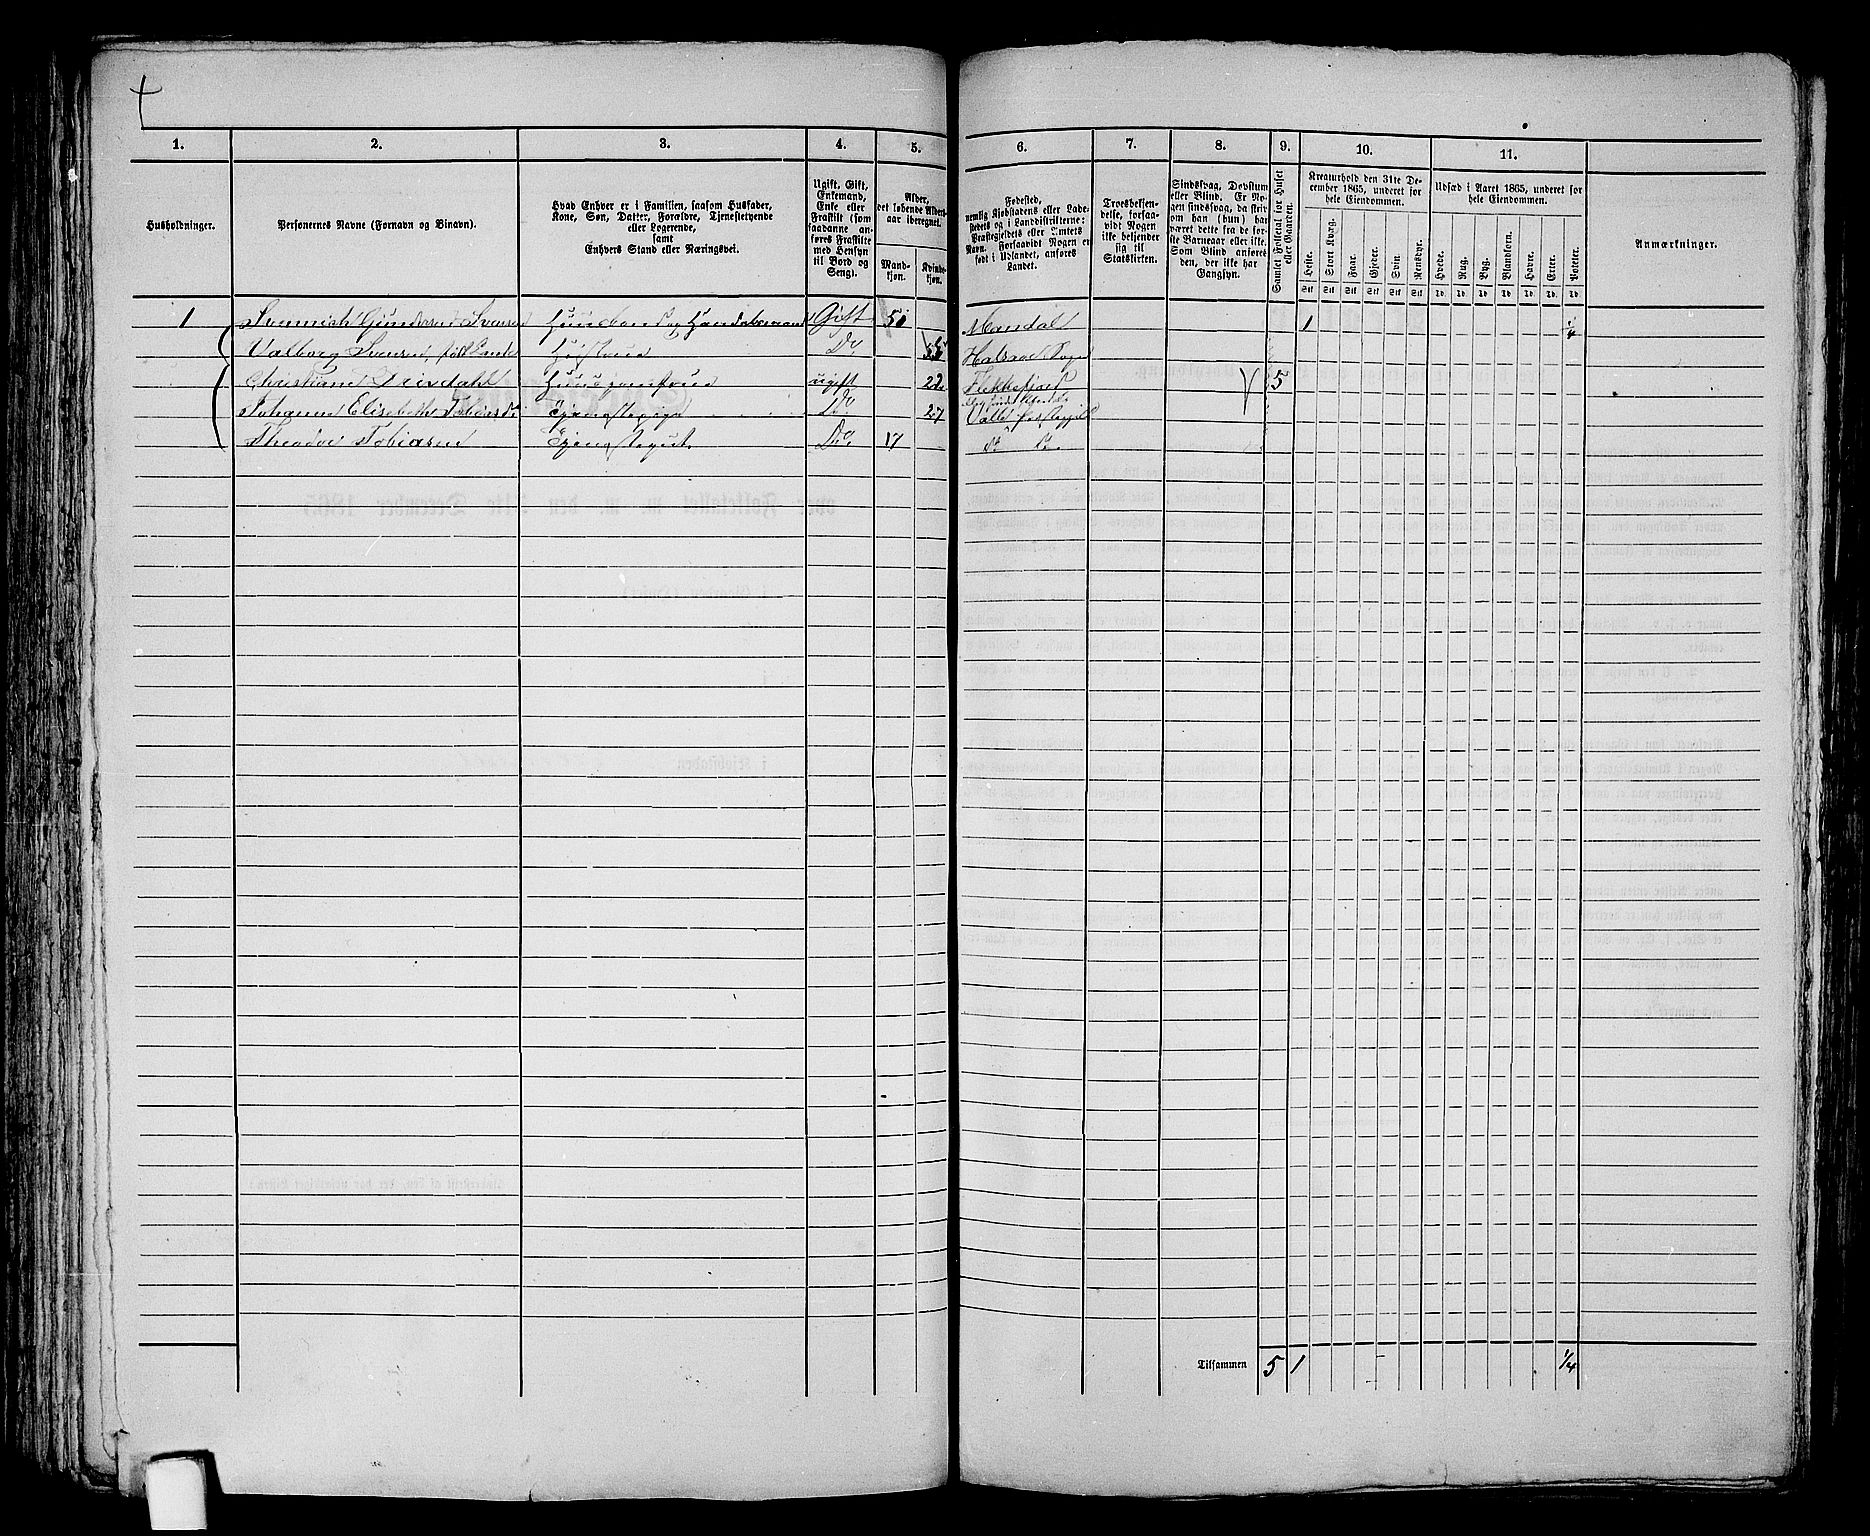 1. 2. 3. 4. 5. 6. 7. 8. 9. 10. 11.
Husholdninger.
Personernes Navne (Fornavn og Binavn).
Hvad Enhver er i Familien, saasom Husfader,
Kone, Søn, Datter, Forældre, Tjenestetyende
eller Logerende,
samt
Enhvers Stand eller Næringsvei.
Ugift, Gift,
Enkemand,
Enke eller
Fraskilt (som
saadanne an-
føres Fraskilte
med Hensyn
til Bord og
Seng).
Alder,
det løbende Alders-
aar iberegnet.
Mand-
kjøn.
Kvinde-
kjøn.
Fødested,
nemlig Kjøbstadens eller Lade-
stedets og i Landdistrikterne:
Præstegjeldets eller Amtets
Navn. Forsaavidt Nogen er
født i Udlandet, anføres
Landet.
Troesbekjen-
delse, forsaa-
vidt Nogen
ikke bekjender
sig til
Statskirken.
Sindssvag, Døvstum
eller Blind. Er No-
gen sindssvag, da skriv
om han (hun) har
været dette fra de før-
ste Barneaar eller ikke.
Som Blind anføres
den, der ikke har
Gangsyn.
Samlet Folketal for Huset
eller Gaarden.
Kreaturhold den 31te De-
cember 1865, underet for
hele Eiendommen.
Heste. Stort Kvæg. Faar. Gjeder. Svin. Rensdyr.
Stk Stk Stk Stk Stk Stk
Udsæd i Aaret 1865, underet for
hele Eiendommen.
Hvede. Rug. Byg. Blandkorn. Havre. Erter. Poteter.
Td. Td. Td. Td. Td. Td. Td.
Anmærkninger.
1 Gundersen Svensen Huusbond og Handelsmand Gift 51 Mandal 1 1/4
Valborg Svensen, født Do
Christiane ugift 22 Flekkefjord 5
Johanne Elisabeth Do 27
Theodor Tobiasen Do 17 do do
Tilsammen 5 1 1/4